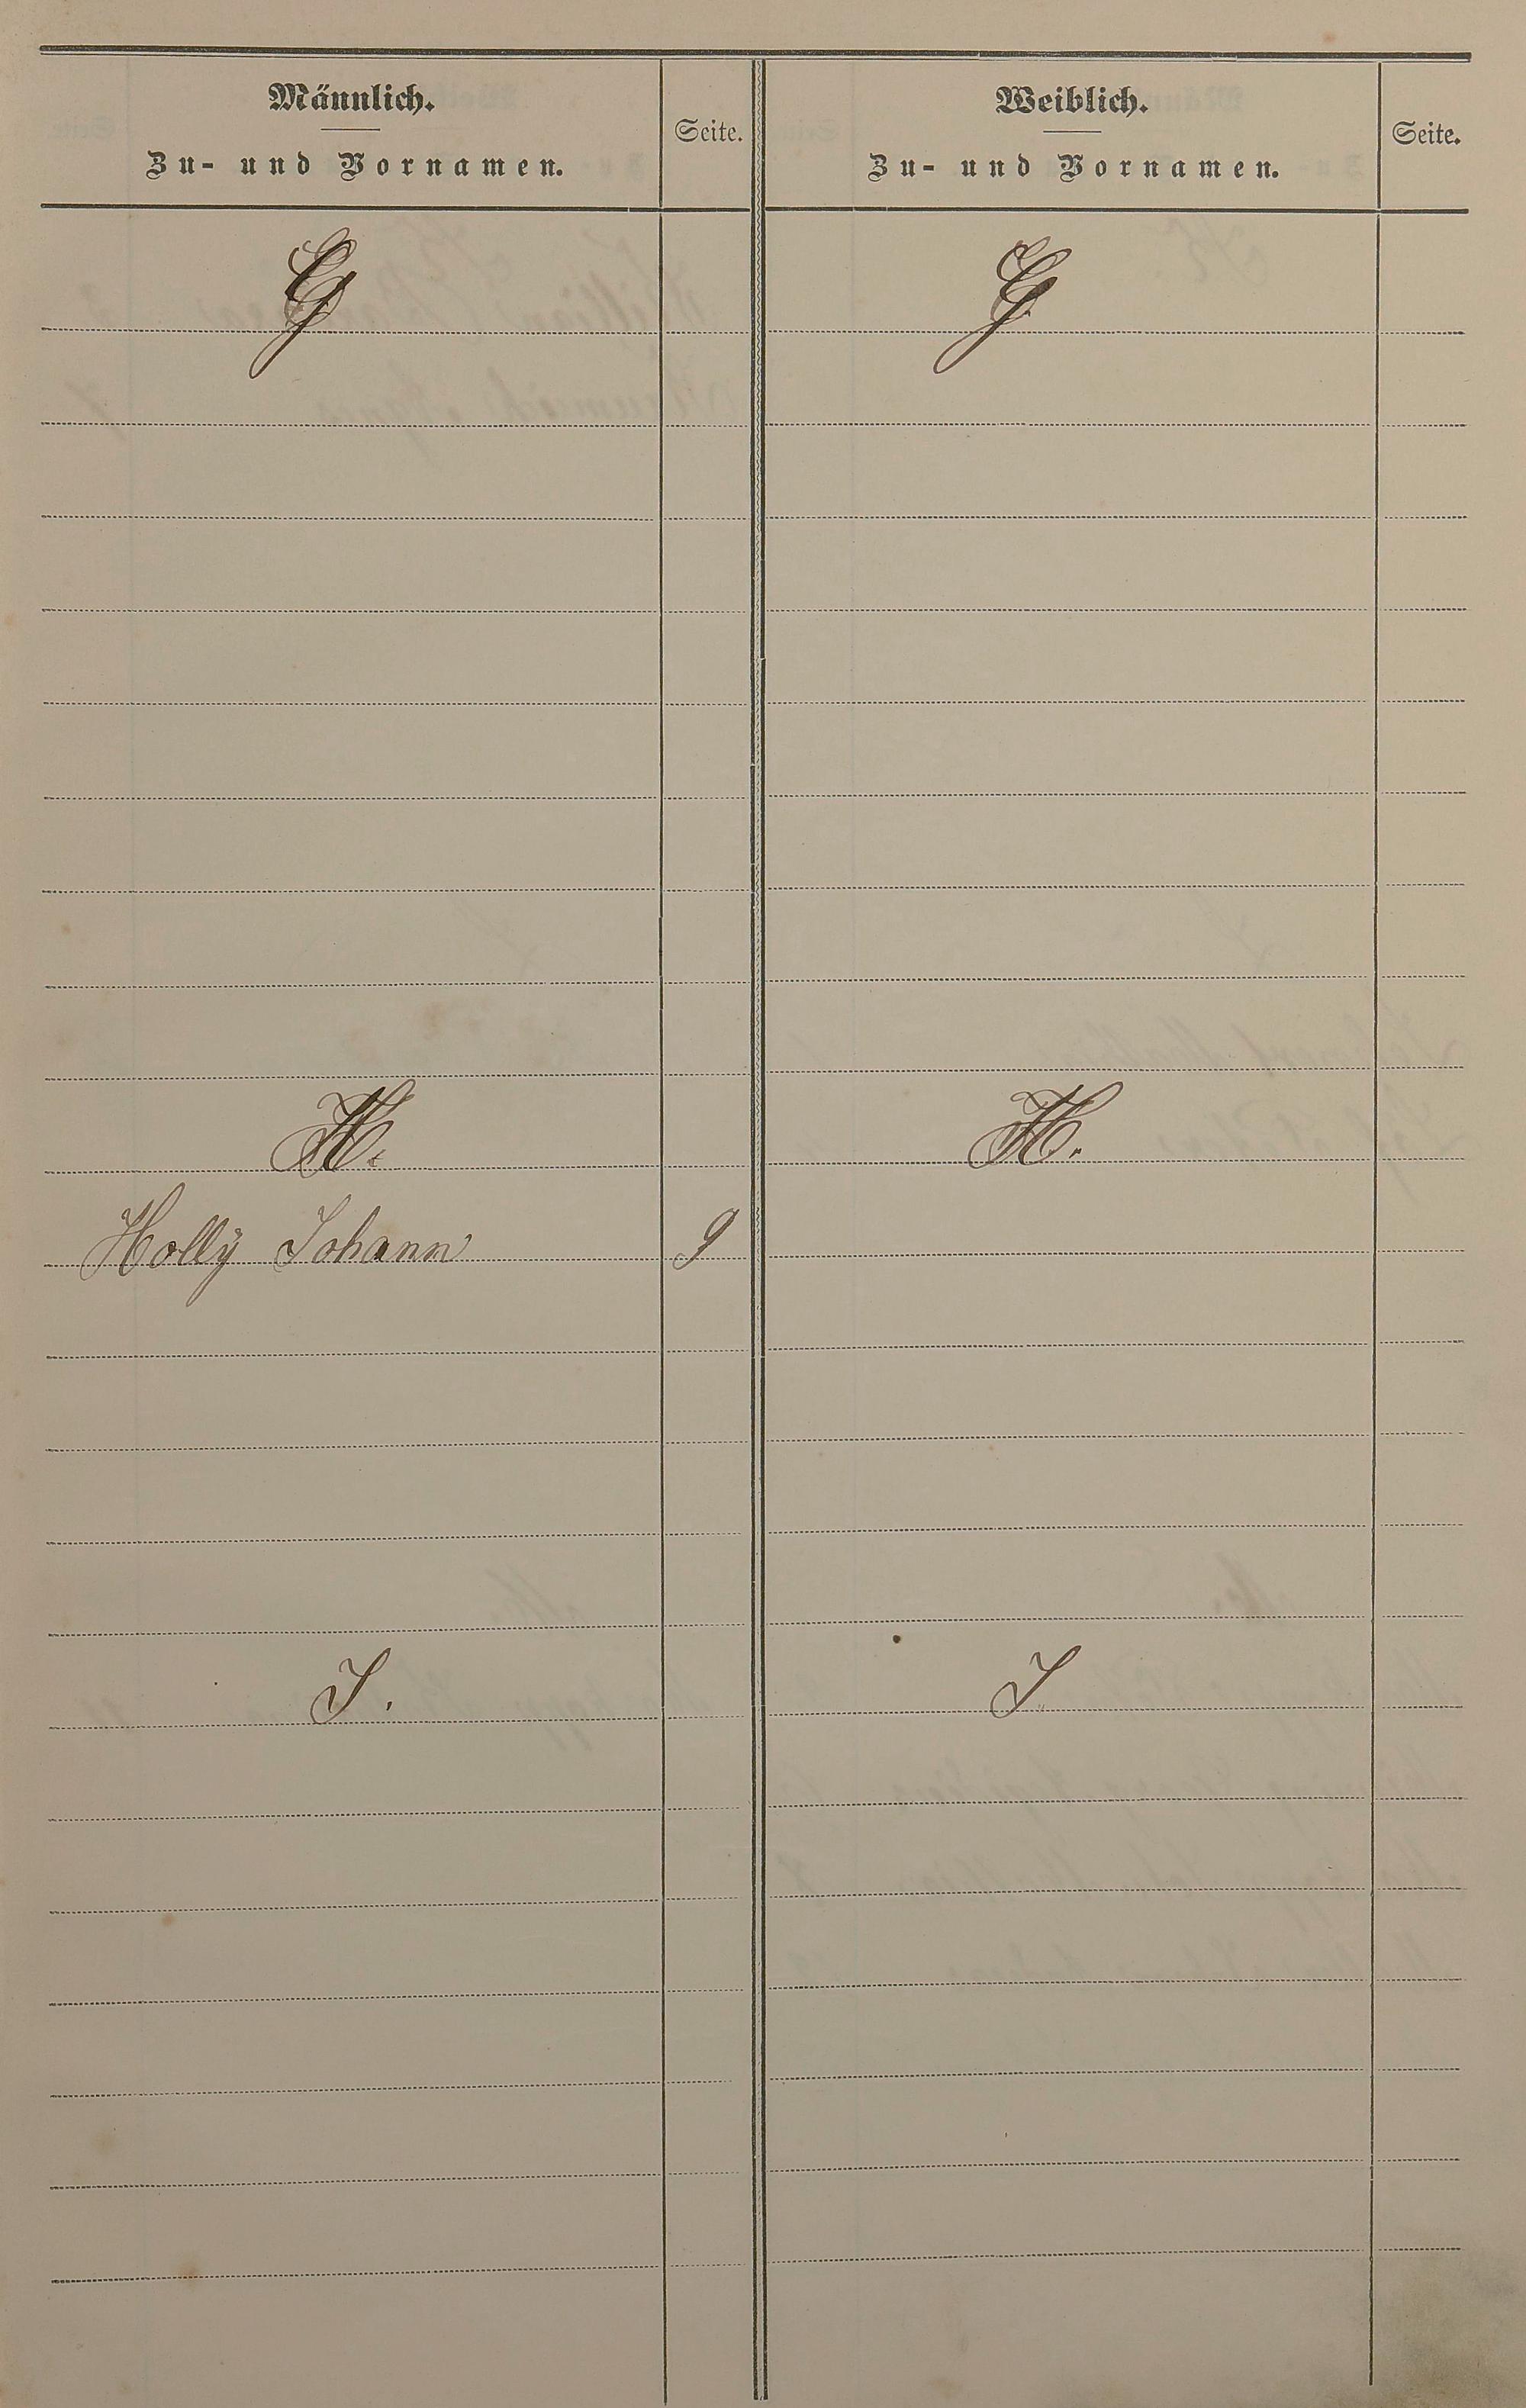 Männlich.
Zu- und Vornamen.
Seite.
Weiblich.
Zu- und Vornamen.
Seite.
G
G.
H.
H.
Hollÿ Johann 9
I.
I.